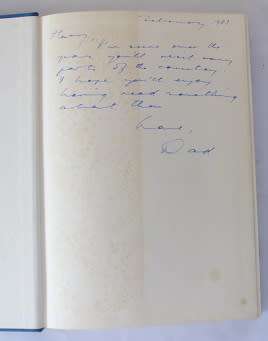 February 1983
Harry,
I'm sure over the
years you'll visit many
parts of the country
I hope you'll enjoy
having read something
about them
Love,
Dad